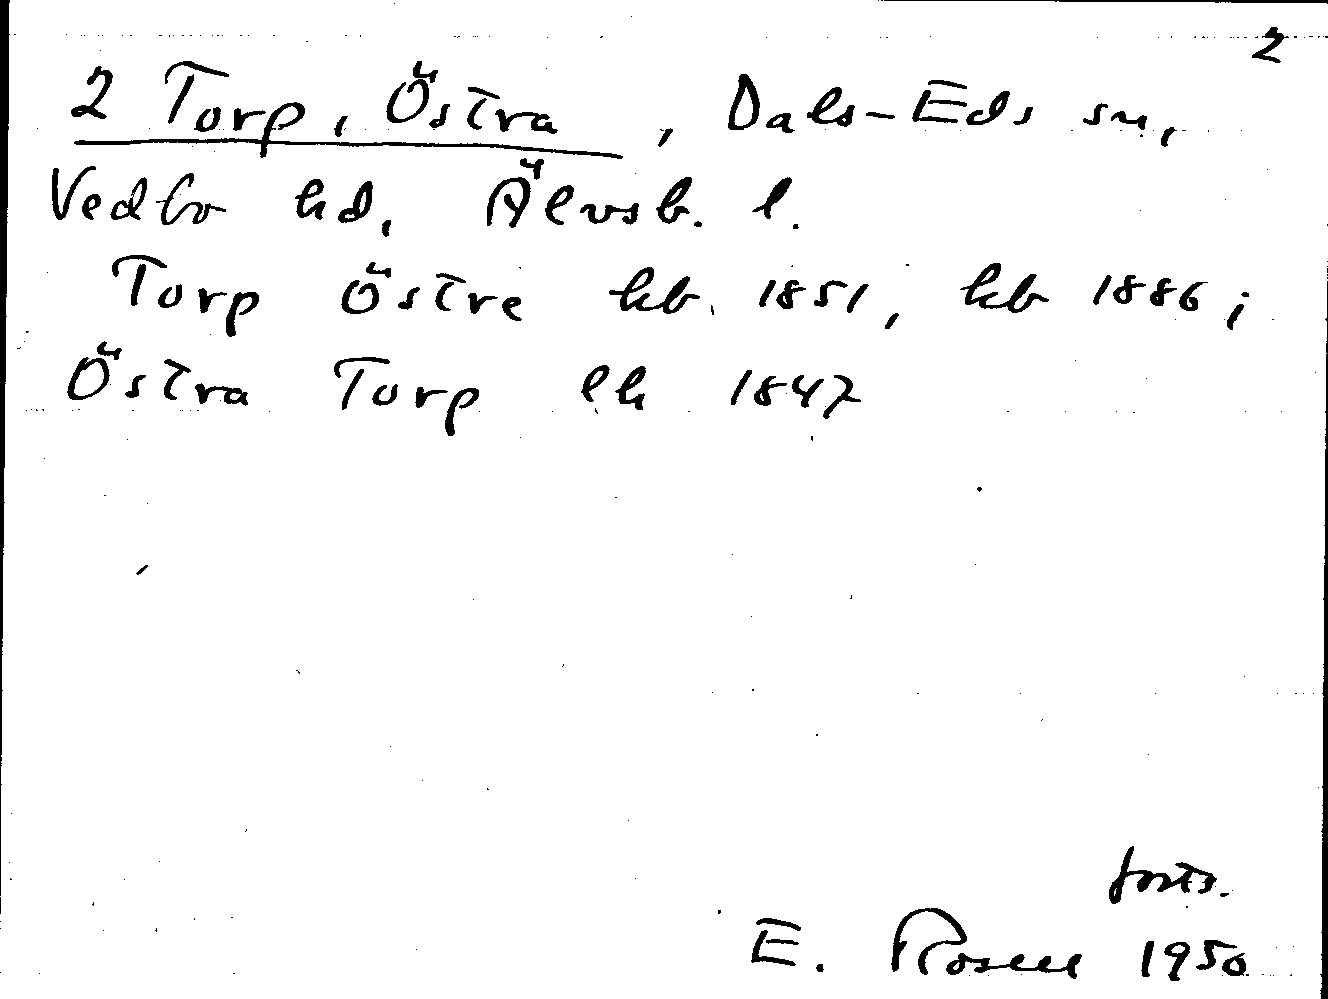 2
2 Torp, Östra, Dals-Eds sn,
Vedbo hd, Älvsb. l.
Torp Östre kb. 1851, kb 1886;
Östra Torp lh 1847
forts.
E. Rosell 1950